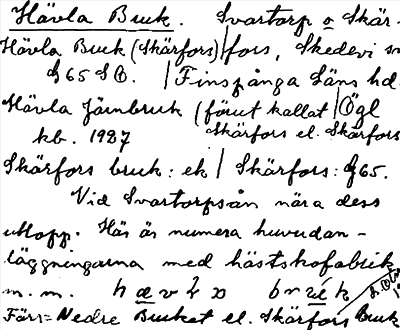 Hävla Bruk. Svartorp o Skär-
Hävla Bruk (Skärfors) fors, Skedevi sn
G 65 SO. Finspånga Läns hd.
Hävla Järnbruk (förut kallat Ögl
kb. 1927 Skärfors el. Skärfors
Skärfors bruk: ek Skärfors: G65.
Vid Svartorpsån nära dess
utlopp. Här är numera huvudan-
läggningarna med hästskofabrik
m. m.
Färs = Nedre Bruket el. Skärfors Bruk